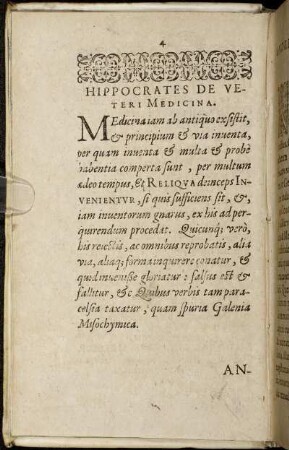 4
HIPPOCRATES DE VE-
TERI MEDICINA.
MEdicina iam ab antiquo exsistit,
& principium & via inventa,
per quam inventa & multa & probè
habentia comperta sunt, per multum
adeo tempus, & RELIQVA deinceps IN-
VENIENTVR, si quis sufficiens sit, &
iam inventorum gnarus, ex his ad per-
quirendum procedat. Quicunq; verò,
his reiectis, ac omnibus reprobatis, alia
via, aliaq; forma inquirere conatur, &
quid invenisse gloriatur: falsus est &
fallitur, &c Quibus verbis tam para-
celsia taxatur, quam spuria Galenia
Misochymica.
AN-